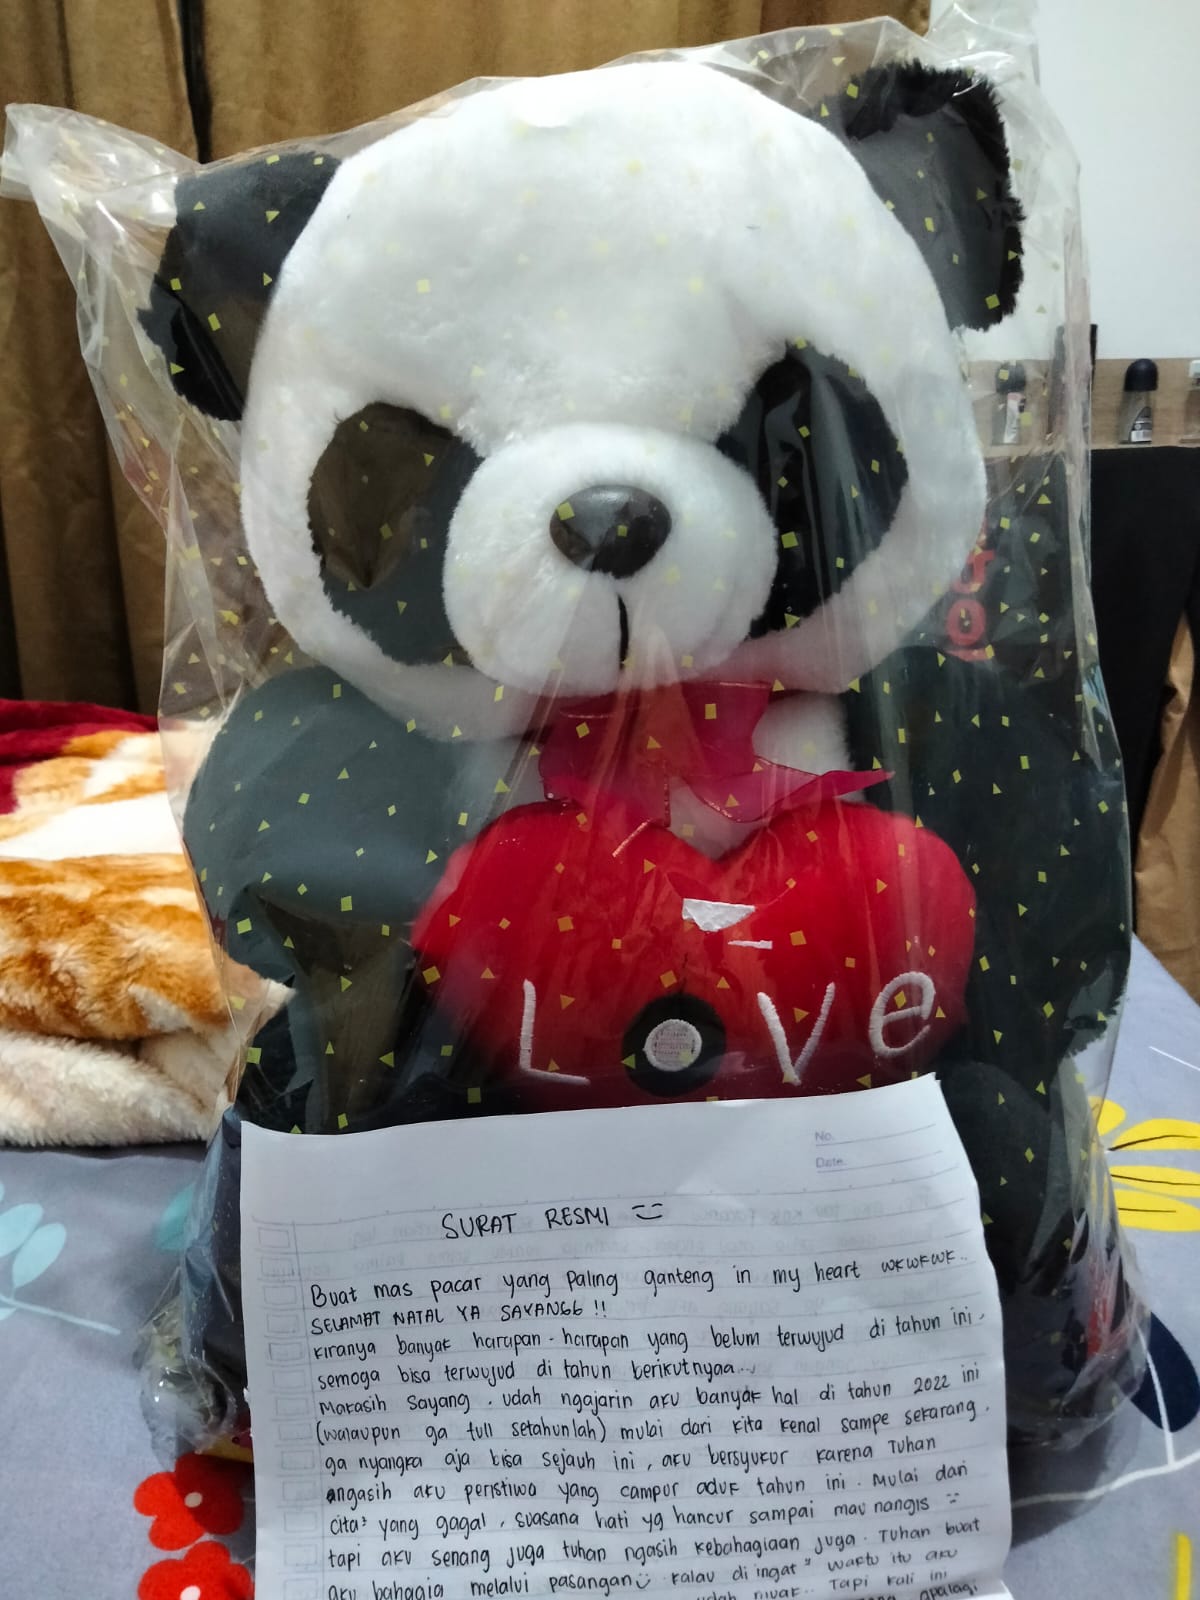 L ve
No.
Date.
SURAT RESMI
Buat mas pacar yang paling ganteng in my heart wkwkwk..
SELAMAT NATAL YA SAYANGG !!
kiranya banyak harapan-harapan yang belum terwujud di tahun ini.
semoga bisa terwujud di tahun berikutnyaa...
Makasih sayang. udah ngajarin aku banyak hal di tahun 2022 ini
(walaupun ga full setahunlah) mulai dari kita kenal sampe sekarang.
ga nyangka aja bisa sejauh ini, aku bersyukur karena Tuhan
angasih aku peristiwa yang campur aduk tahun ini. Mulai dari
cita² yang gagal, suasana hati yg hancur sampai mau nangis
tapi aku senang juga tuhan ngasih kebahagiaan juga. Tuhan buat
aku bahagia melalui pasangan kalau di ingat" waktu itu aku
Tapi kali ini
apalagi